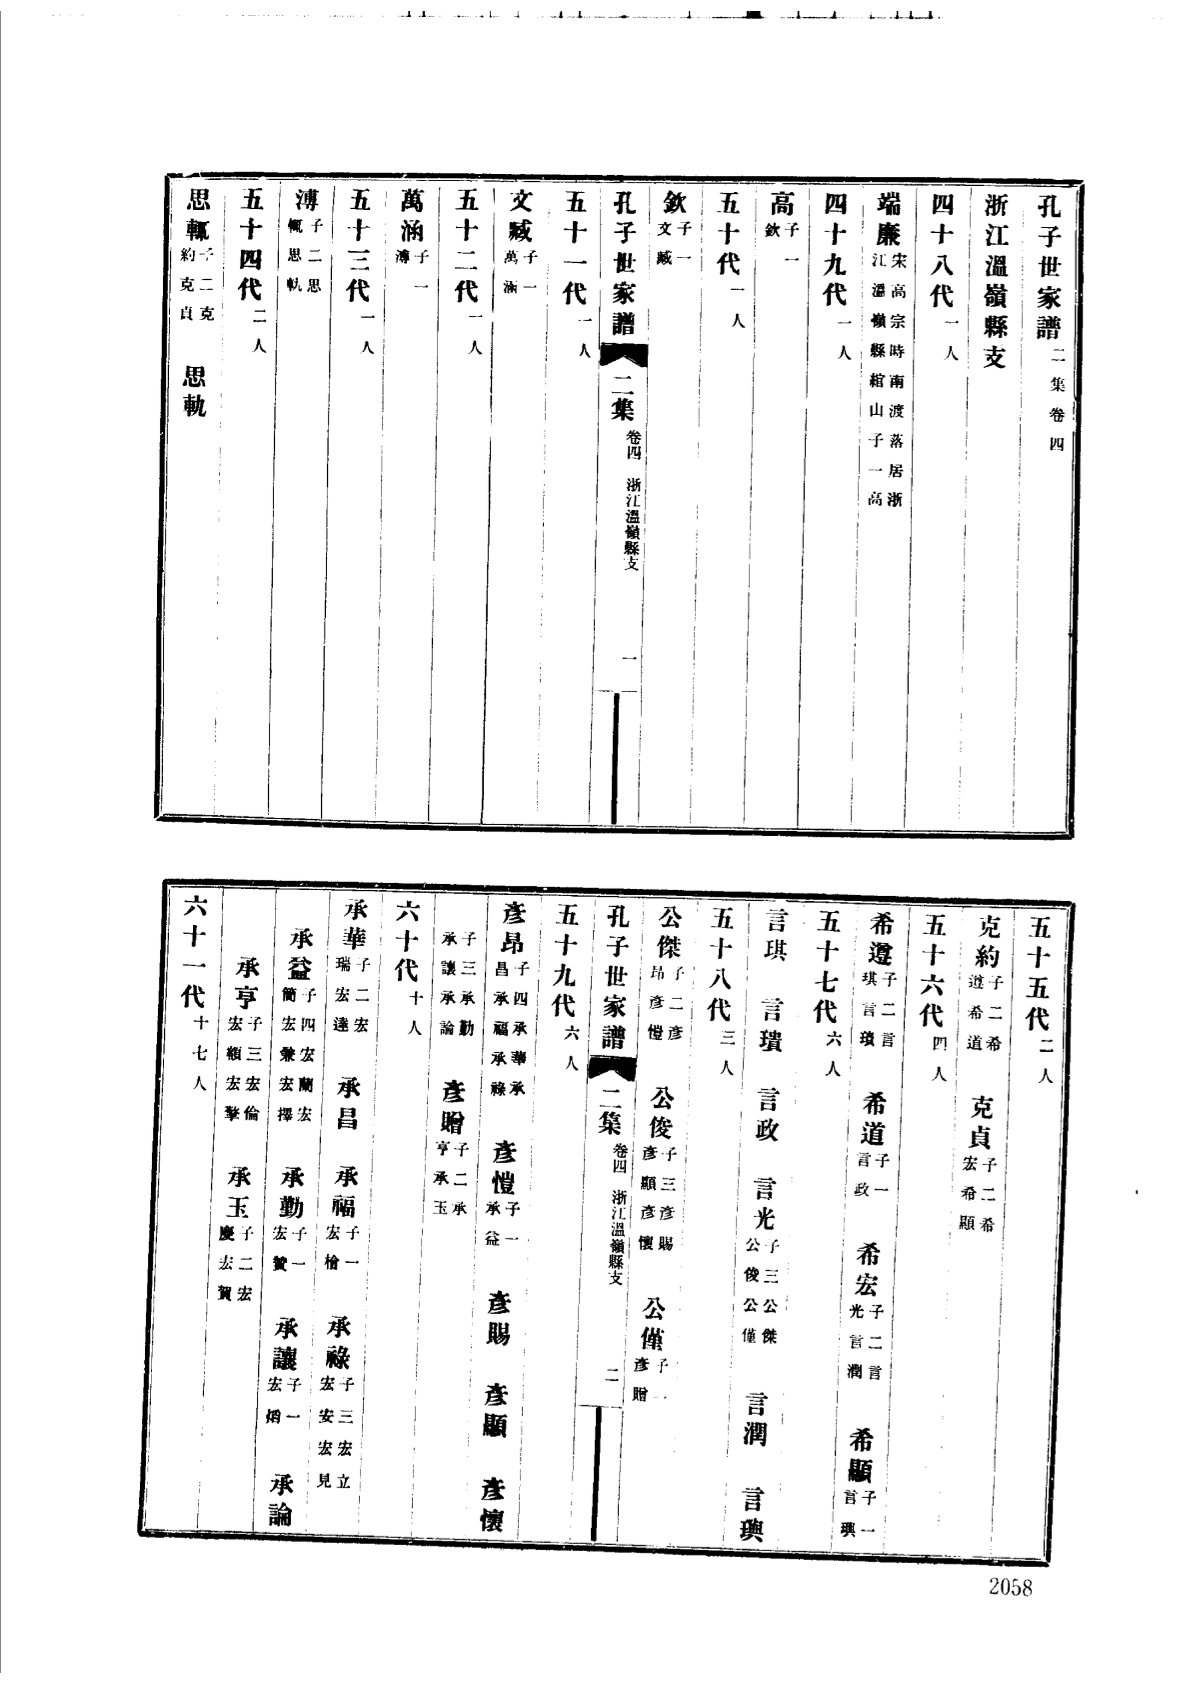 孔子世家譜 二集卷四
浙江溫嶺縣支
四十八代 一人
端廉 宋高宗時南渡落居浙江溫嶺縣綰山子一高
四十九代 一人
高 子一欽
五十代 一人
欽 子一文臧
孔子世家譜 二集 卷四 浙江溫嶺縣支 一
五十一代 一人
文臧 子一萬涵
五十二代 一人
萬涵 子一溥
五十三代 一人
溥 子二思輒思軌
五十四代 二人
思輒 子二克約克貞 思軌
五十五代 二人
克約 子二希遵希道 克貞 子二希宏希顯
五十六代 四人
希遵 子二言琪言璝 希道 子一言政 希宏 子二言光言潤 希顯 子一言璵
五十七代 六人
言琪 言璝 言政 言光 子三公傑公俊公僅 言潤 言璵
五十八代 三人
公傑 子二彥昂彥愷 公俊 子三彥賜彥顯彥懷 公僅 子一彥贈
孔子世家譜 二集 卷四 浙江溫嶺縣支 二
五十九代 六人
彥昂 子四承華承昌承福承祿 彥愷 子一承益 彥賜 彥顯 彥懷
子三承勤承讓承論 彥贈 子二承亨承玉
六十代 十人
承華 子二宏瑞宏達 承昌 承福 子一宏檜 承祿 子三宏立宏安宏見
承益 子四宏蘭宏簡宏兼宏擇 承勤 子一宏贊 承讓 子一宏熖 承論
承亨 子三宏倫宏額宏擎 承玉 子二宏慶宏賀
六十一代 十七人
2058